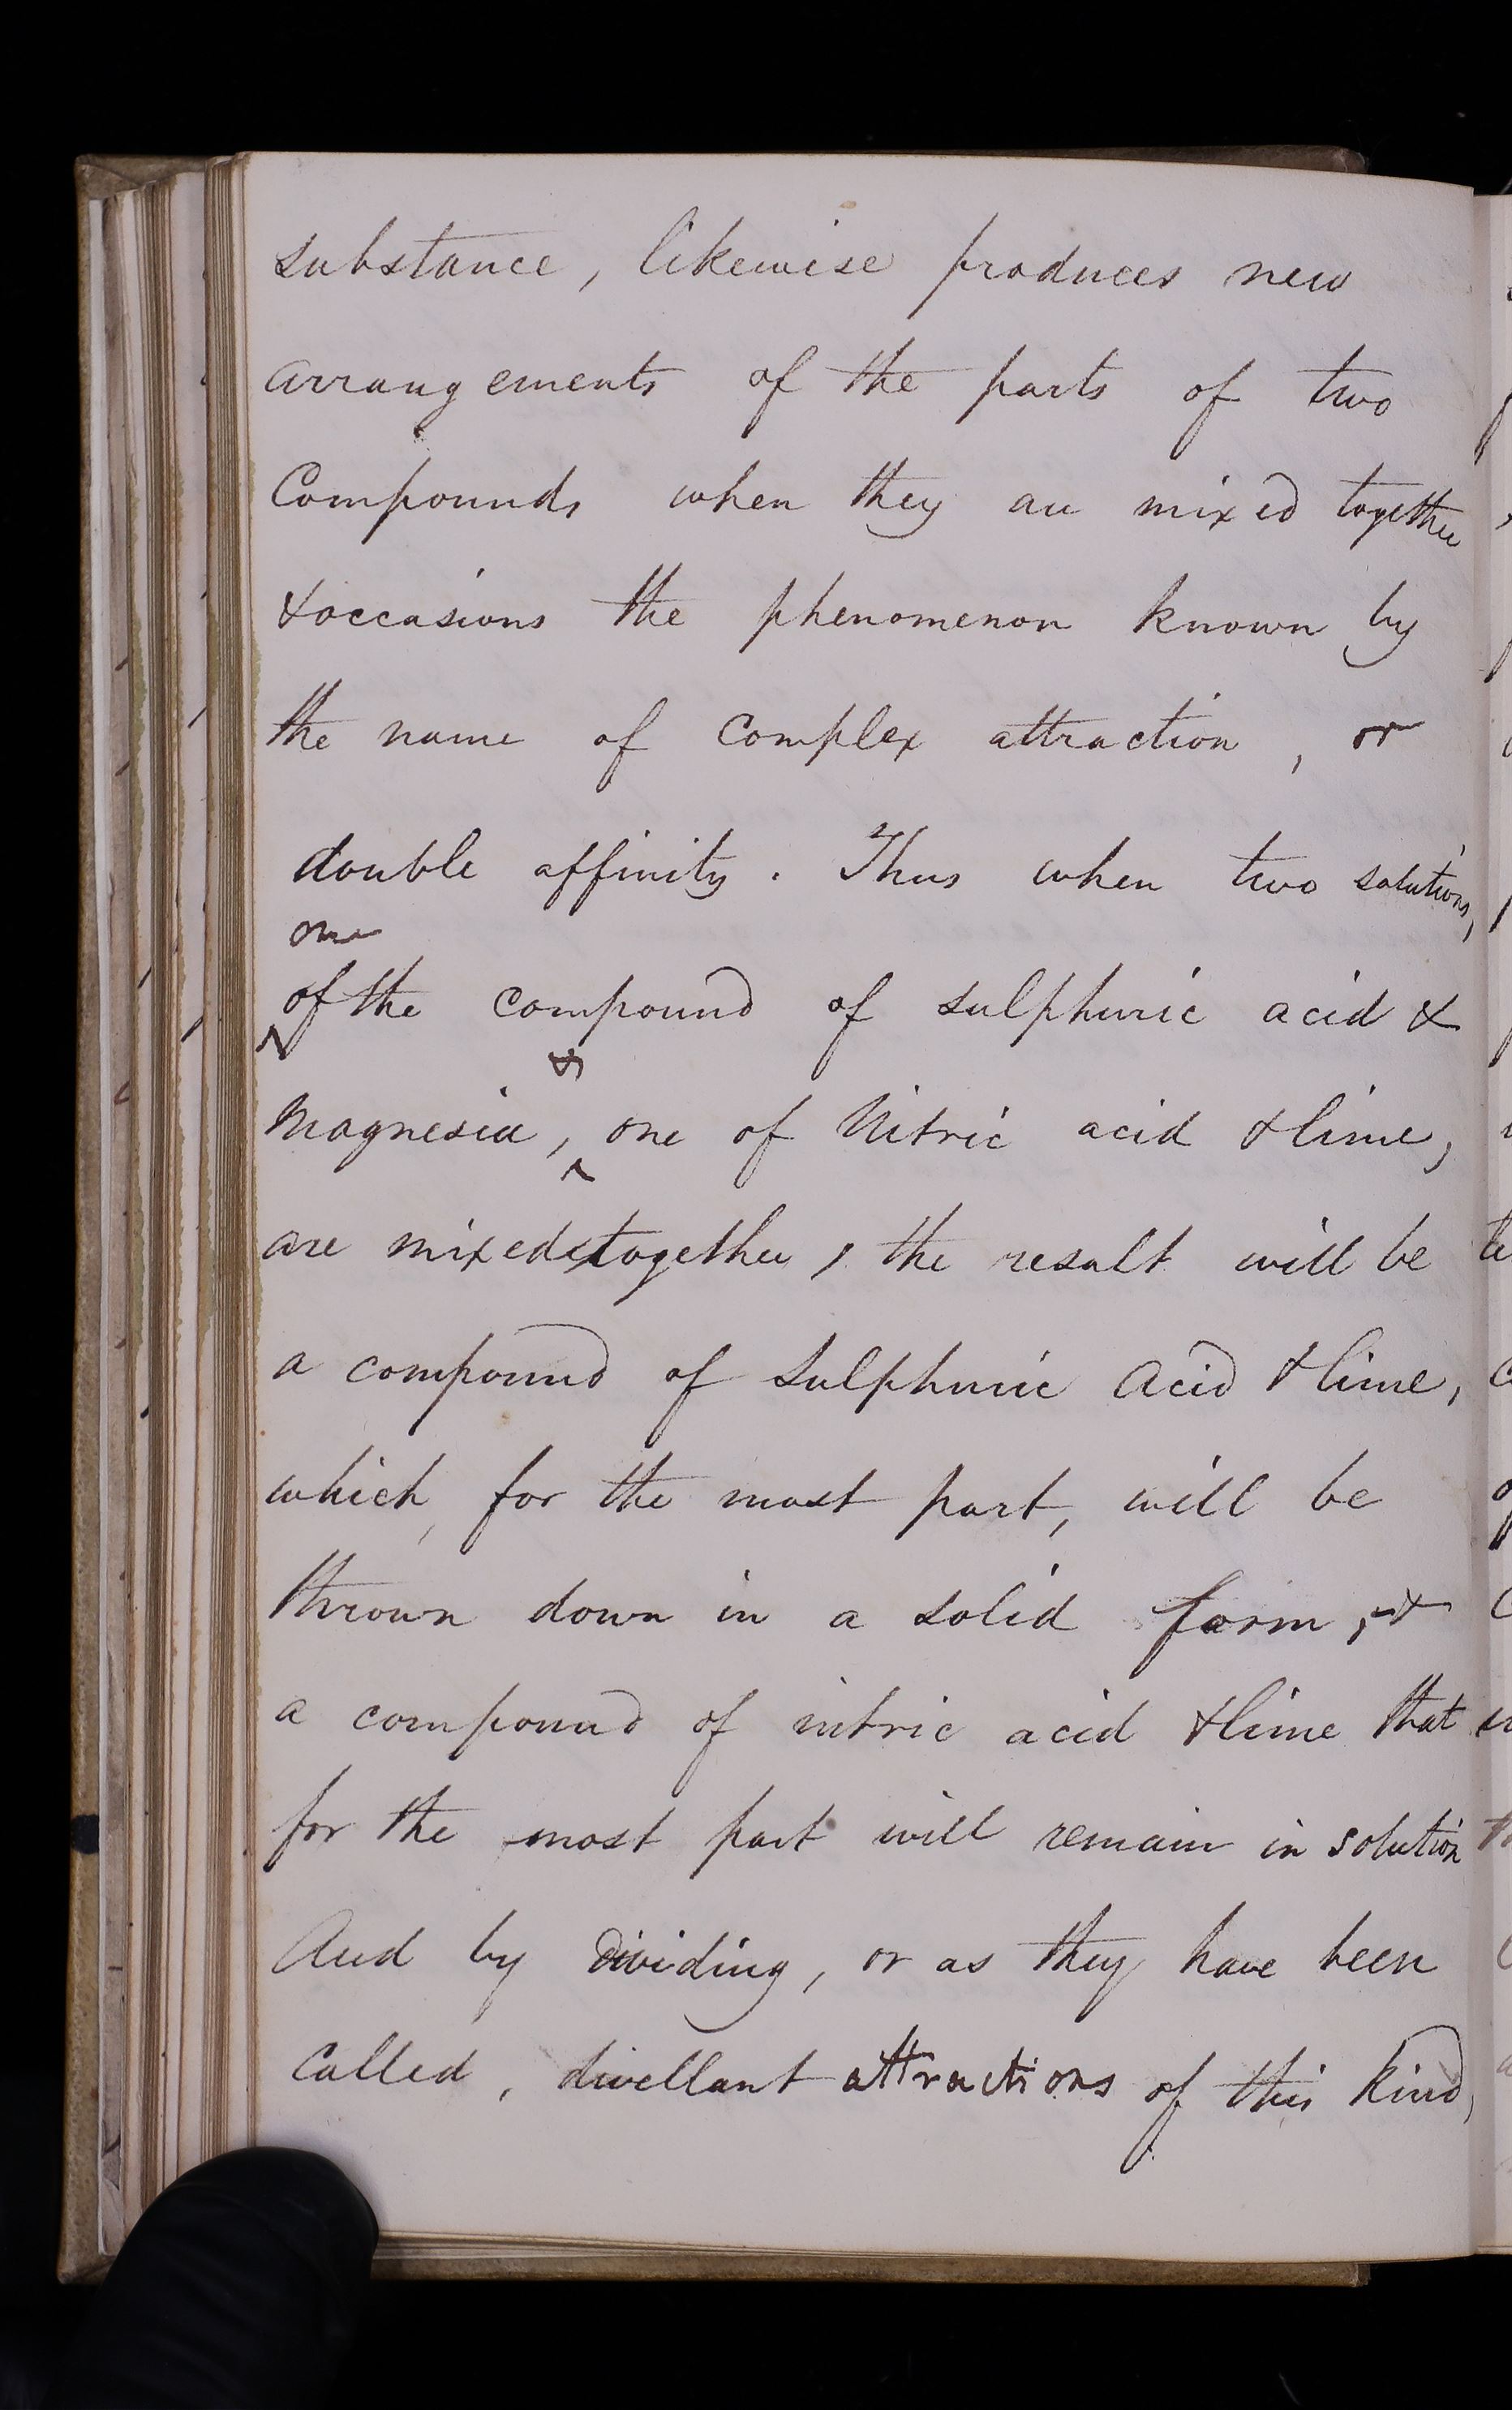 substance, likewise produces new
arrangements of the parts of two
Compounds when they are mixed together
& occasions the phenomenon known by
the name of Complex attraction, or
double affinity. Thus when two solutions,
one
of the compound of sulphuric acid &
&
Magnesia, one of Nitric acid & lime,
are mixed together, the result will be
a compound of Sulphuric Acid & lime,
which, for the most part, will be
thrown down in a solid form, &
a compound of nitric acid & lime that
for the most part will remain in solution
And by dividing, or as they have been
Called, divellant attractions of this kind,